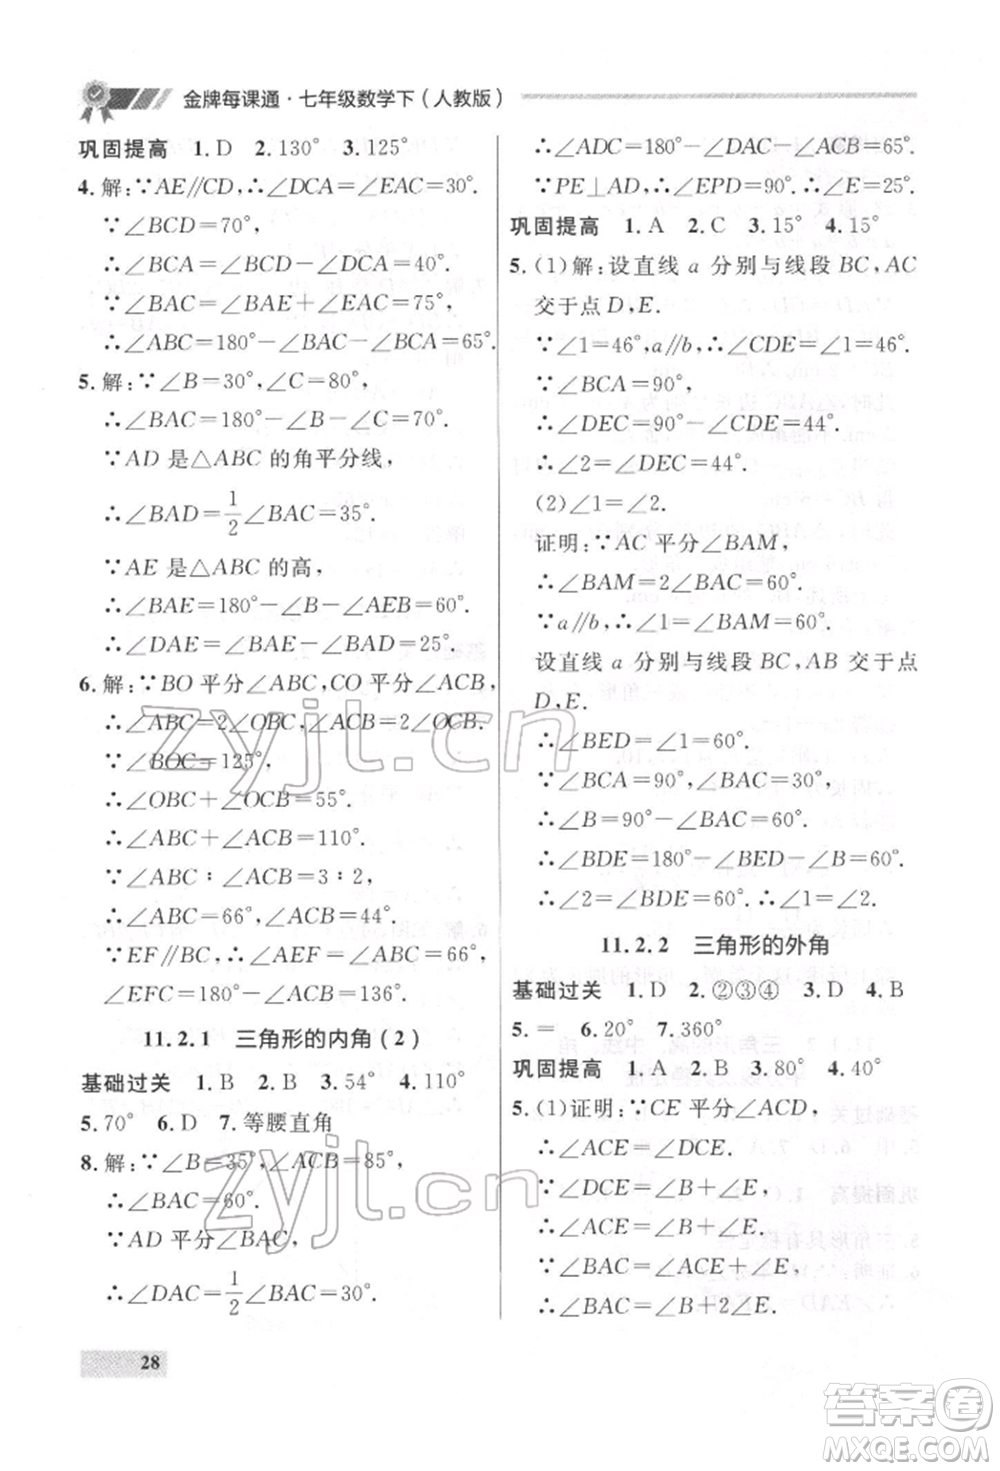 金牌每课通·七年级数学下(人教版)
巩固提高 1.D 2.130° 3.125°
4.解:∵AE∥CD,∴∠DCA=∠EAC=30°.
∵∠BCD=70°,
∴∠BCA=∠BCD-∠DCA=40°.
∵∠BAC=∠BAE+∠EAC=75°,
∴∠ABC=180°-∠BAC-∠BCA=65°.
5.解:∵∠B=30°,∠C=80°,
∴∠BAC=180°-∠B-∠C=70°.
∵AD 是△ABC 的角平分线,
∴∠BAD=1/2∠BAC=35°.
∵AE 是△ABC 的高,
∴∠BAE=180°-∠B-∠AEB=60°.
∴∠DAE=∠BAE-∠BAD=25°.
6.解:∵BO 平分∠ABC,CO 平分∠ACB,
∴∠ABC=2∠OBC,∠ACB=2∠OCB.
∵∠BOC=125°,
∴∠OBC+∠OCB=55°.
∴∠ABC+∠ACB=110°.
∵∠ABC∶∠ACB=3∶2,
∴∠ABC=66°,∠ACB=44°.
∵EF∥BC,∴∠AEF=∠ABC=66°,
∠EFC=180°-∠ACB=136°.
11.2.1 三角形的内角(2)
基础过关 1.B 2.B 3.54° 4.110°
5.70° 6.D 7.等腰直角
8.解:∵∠B=35°,∠ACB=85°,
∴∠BAC=60°.
∵AD 平分∠BAC,
∴∠DAC=1/2∠BAC=30°.
28
∴∠ADC=180°-∠DAC-∠ACB=65°.
∵PE⊥AD,∴∠EPD=90°.∴∠E=25°.
巩固提高 1.A 2.C 3.15° 4.15°
5.(1)解:设直线 a 分别与线段 BC,AC
交于点 D,E.
∵∠1=46°,a∥b,∴∠CDE=∠1=46°.
∵∠BCA=90°,
∴∠DEC=90°-∠CDE=44°.
∴∠2=∠DEC=44°.
(2)∠1=∠2.
证明:∵AC 平分∠BAM,
∴∠BAM=2∠BAC=60°.
∵a∥b,∴∠1=∠BAM=60°.
设直线 a 分别与线段 BC,AB 交于点
D,E.
∴∠BED=∠1=60°.
∵∠BCA=90°,∠BAC=30°,
∴∠B=90°-∠BAC=60°.
∴∠BDE=180°-∠BED-∠B=60°.
∴∠2=∠BDE=60°.∴∠1=∠2.
11.2.2 三角形的外角
基础过关 1.D 2.②③④ 3.D 4.B
5.= 6.20° 7.360°
巩固提高 1.A 2.B 3.80° 4.40°
5.(1)证明:∵CE 平分∠ACD,
∴∠ACE=∠DCE.
∵∠DCE=∠B+∠E,
∴∠ACE=∠B+∠E.
∵∠BAC=∠ACE+∠E,
∴∠BAC=∠B+2∠E.
zyjl.cn
zyjl.cn
答案圈
MXQE.COM